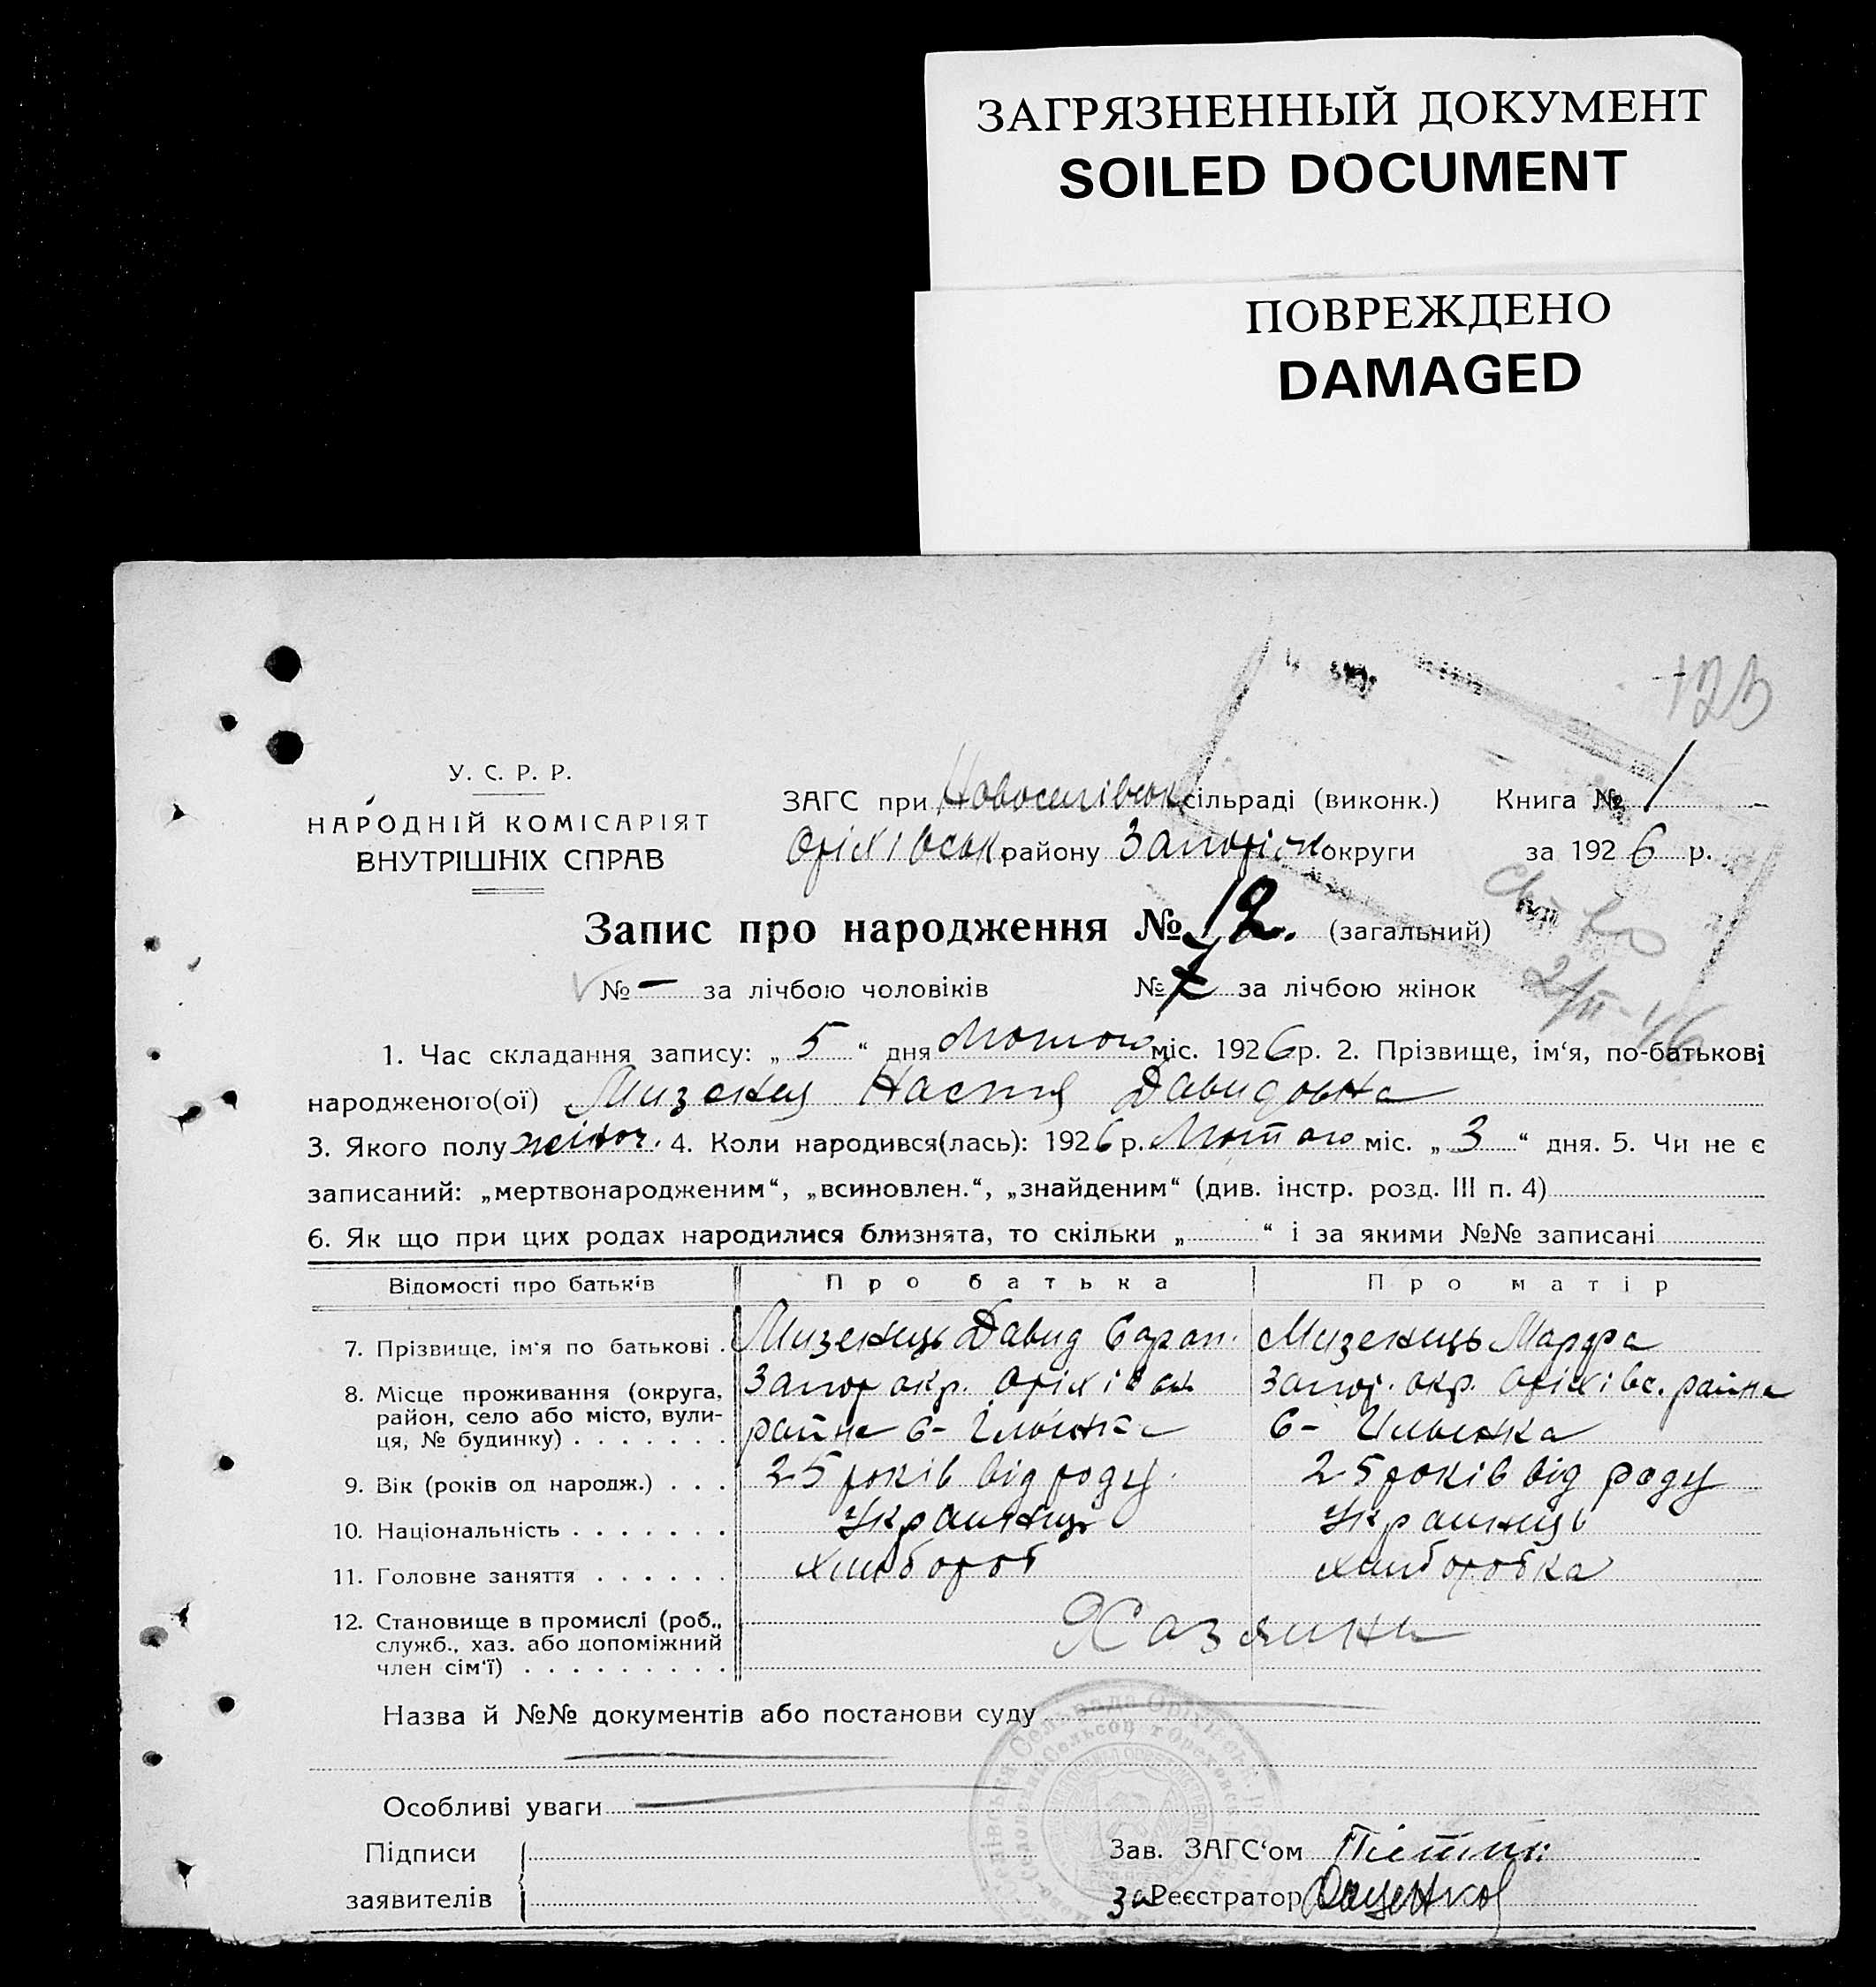 ЗАГРЯЗНЕННЫЙ ДОКУМЕНТ
SOILED DOCUMENT
ПОВРЕЖДЕНО
DAMAGED
У. С. Р. Р.
НАРОДНІЙ КОМІСАРІЯТ
ВНУТРІШНІХ СПРАВ
ЗАГС при Новоселівськ сільраді (виконк.) Книга № 1
Оріхівськ району Запоріж округи за 1926 р.
Запис про народження № 12. (загальний)
№ — за лічбою чоловіків № 7 за лічбою жінок
2/II-46
1. Час складання запису: „ 5 “ дня Лютого міс. 1926 р. 2. Прізвище, ім‘я, по-батькові
народженого(ої) Мизенец Настя Давидовна
3. Якого полу жіноч. 4. Коли народився(лась): 1926 р. Лютого міс. „ 3 “ дня. 5. Чи не є
записаний: „мертвонародженим“, „всиновлен.“, „знайденим“ (див. інстр. розд. III п. 4)
6. Як що при цих родах народилися близнята, то скільки „ “ і за якими №№ записані
Відомості про батьків Про батька Про матір
7. Прізвище, ім‘я по батькові . Мизенець Давид Мизенець Марфа
8. Місце проживання (округа, Запор окр. Оріхівськ Запор. окр. Оріхівс. район
район, село або місто, вули- район с- с-
ця, № будинку) . . . . . . .
9. Вік (років од народж.) . . . 25 років від роду 25 років від роду
10. Національність . . . . . . . Українець Українець
11. Головне заняття . . . . . . хлибороб хлиборобка
12. Становище в промислі (роб., Хазяини
служб., хаз. або допоміжний
член сім‘ї) . . . . . . . . .
Назва й №№ документів або постанови суду
Особливі уваги
Підписи Зав. ЗАГС‘ом
заявителів За Реєстратор